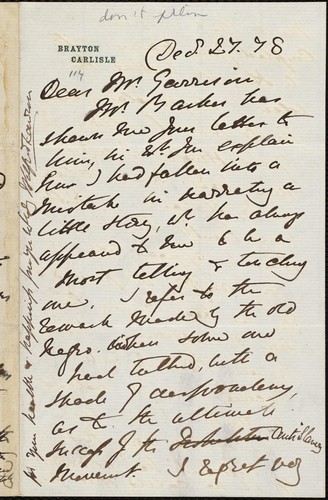 don't plan
BRAYTON
CARLISLE
Dec. 27. 78
114
Dear Mr. Garrison
Mr. Parker has
shown me your letter to
him, in wh. you explain
how I had fallen into a
mistake in narrating a
little story, wh. has always
appeared to me to be a
most telling & touching
one. I refer to the
remark made by the old
Negro. when some one
had talked, with a
shade of despondency,
as to the ultimate
success of the Anti Slavery
movement. I regret very
for your health & happiness